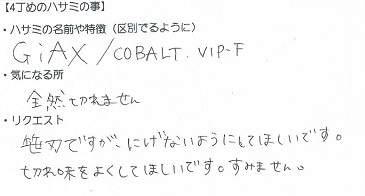 【4丁めのハサミの事】
・ハサミの名前や特徴（区別でるように）
GiAX/COBALT. VIP-F
・気になる所
全然切れません
・リクエスト
笹刃ですが、にげないようにしてほしいです。
切れ味をよくしてほしいです。すみません。